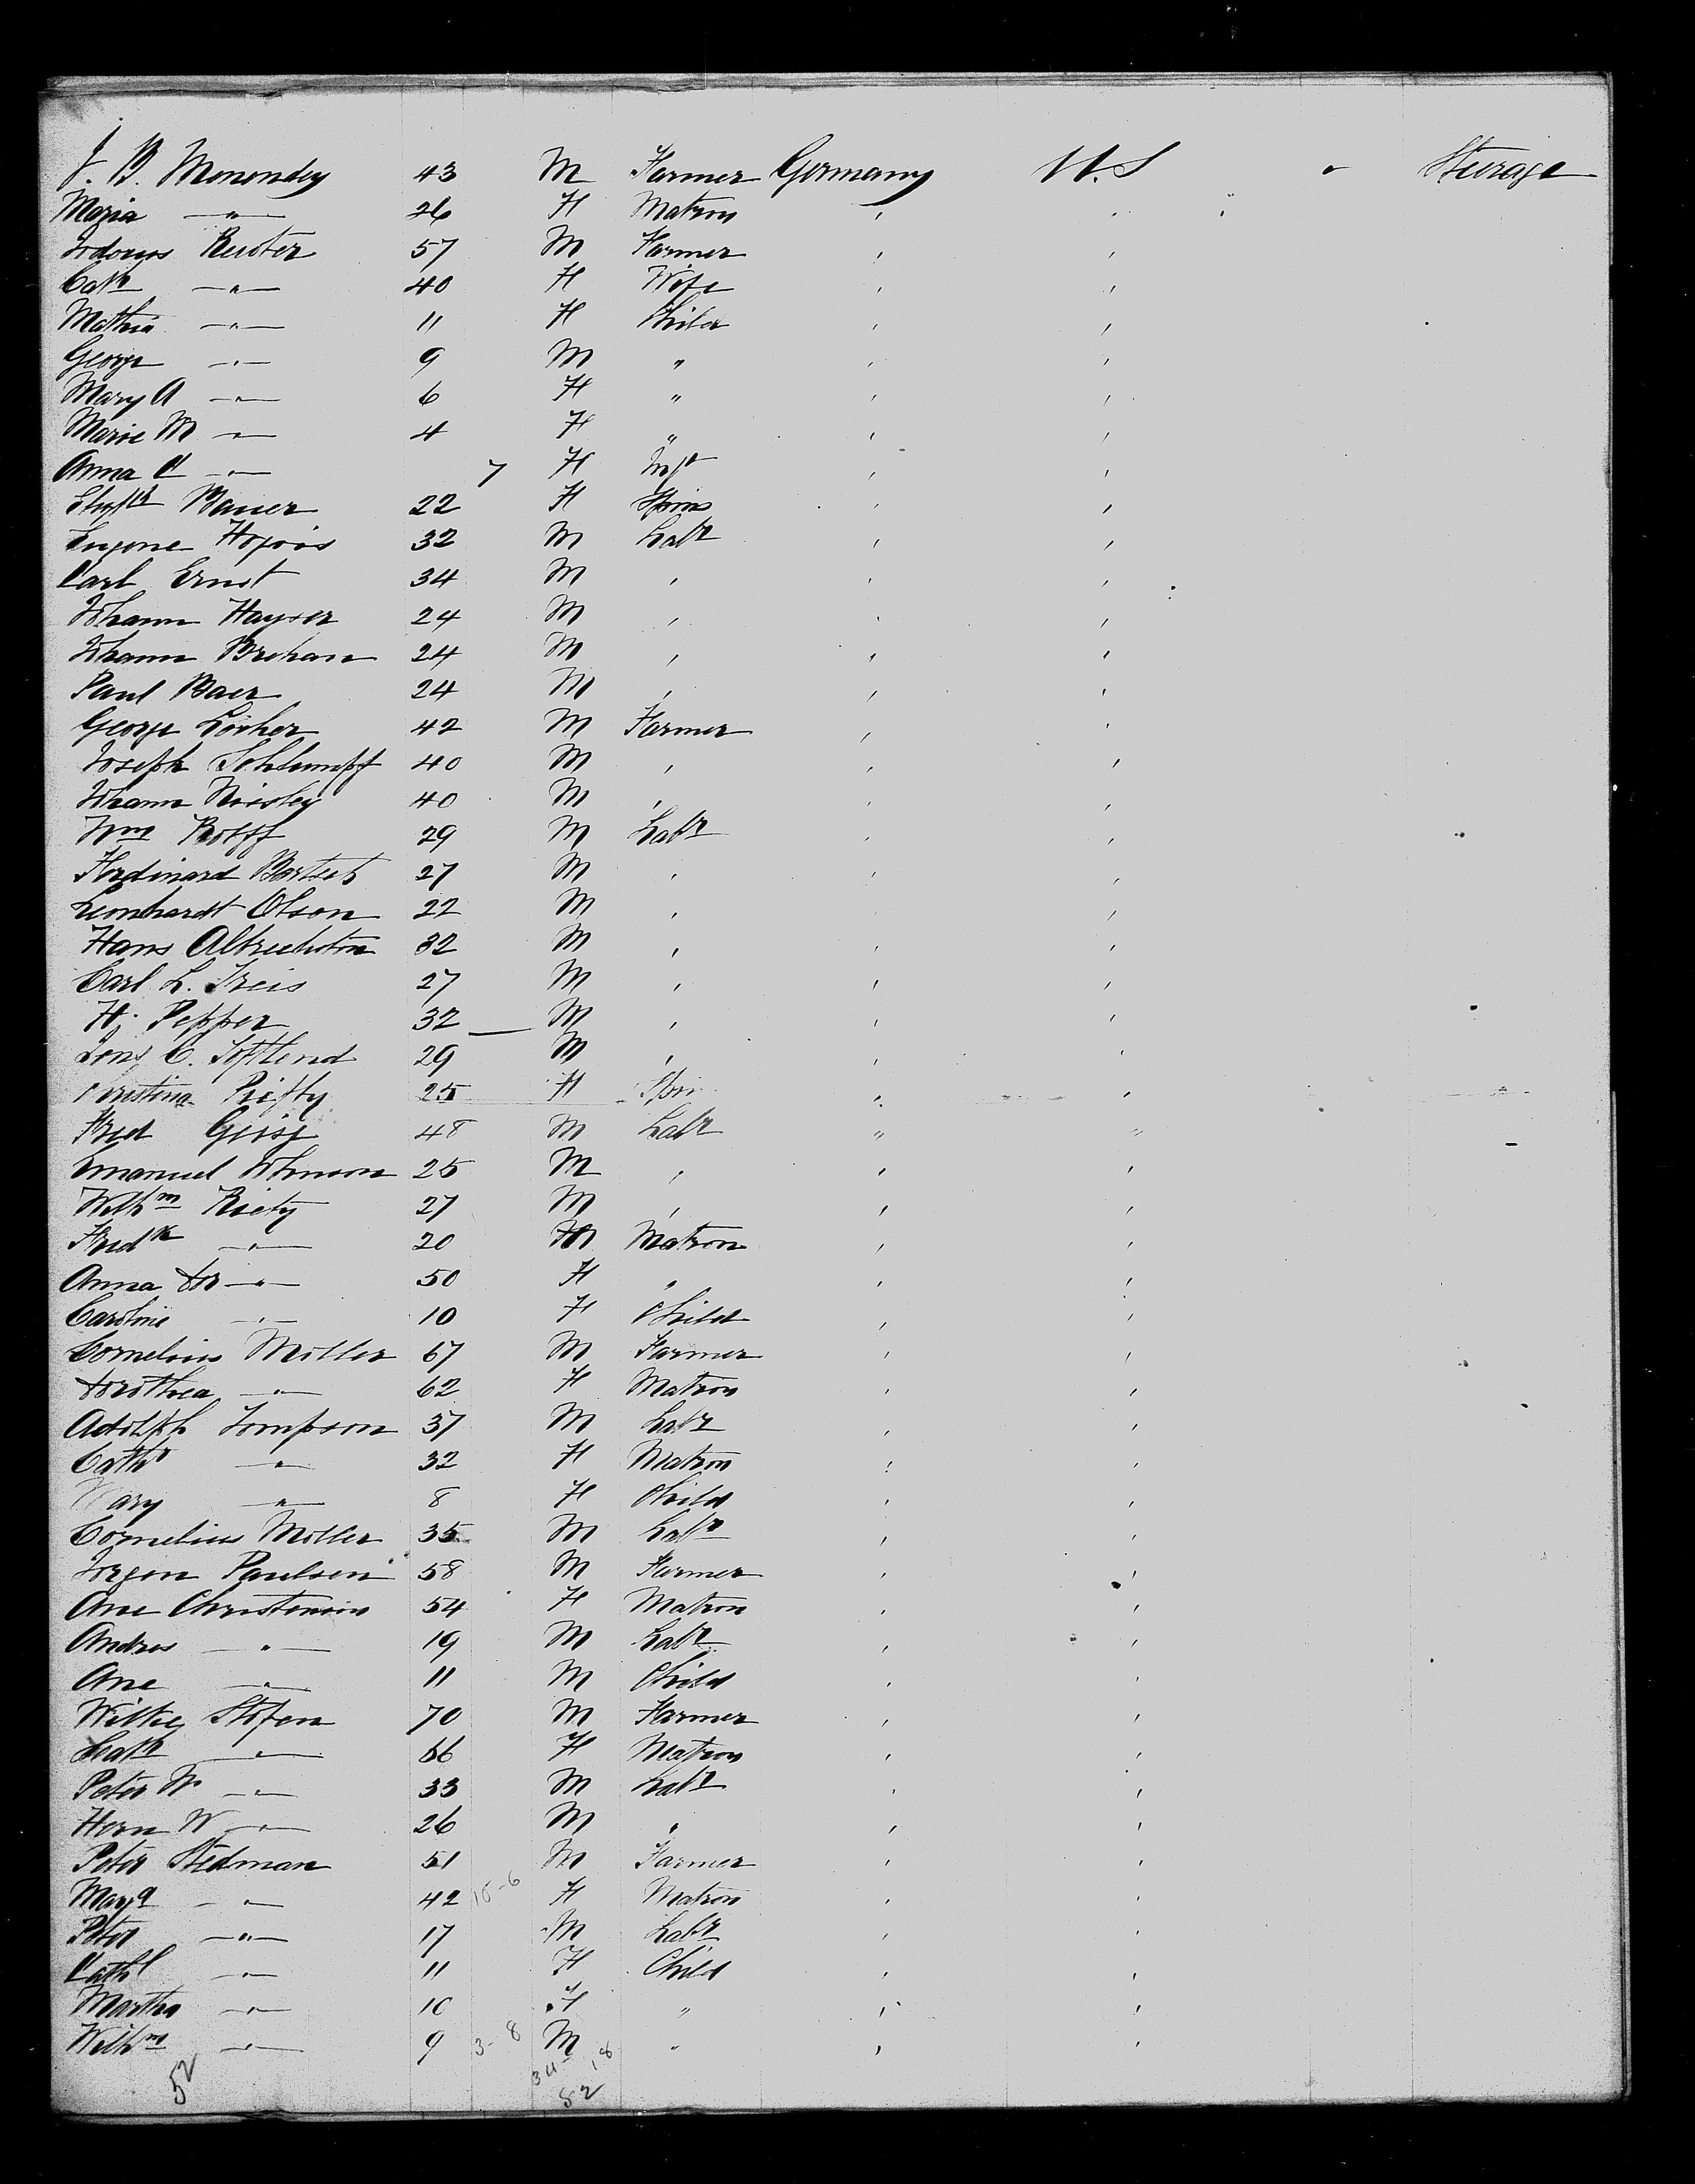 J. B. Monondey 43 M Farmer Germany U.S " Steerage
Maria —"— 26 F Matron " "
Reuter 57 M Farmer " "
Cath —"— 40 F Wife " "
Mathia —"— 11 F Child " "
George —"— 9 M " " "
Mary A —"— 6 F " " "
Marie M —"— 4 F " " "
Anna C —"— 7 F Inft " "
Bauer 22 F Spins " "
Eugene 32 M Labr " "
Carl Ernst 34 M " " "
Johann Hayser 24 M " " "
Johann Brehan 24 M " " "
Paul Baer 24 M " " "
George Locher 42 M Farmer " "
Joseph Schlumpf 40 M " " "
Johann Niesley 40 M " " "
Wm Rolff 29 M Labr " "
Ferdinard Bartsch 27 M " " "
Leonhardt Olson 22 M " " "
Hans Albrechtson 32 M " " "
Carl L. Freis 27 M " " "
H. Pepper 32 — M " " "
Jens C. Toftlend 29 M " " "
Christina 25 F Spin " "
Fred 48 M Labr " "
Emanuel Johnson 25 M " " "
Wilhm Rietz 27 M " " "
Fredk —"— 20 Matron " "
Anna Dor —"— 50 F " " "
Caroline —"— 10 F Child " "
Cornelius Moller 67 M Farmer " "
Dorothea —"— 62 F Matron " "
Adolph Tompson 37 M Labr " "
Cath —"— 32 F Matron " "
Mary —"— 8 F Child " "
Cornelius Moller 35 M Labr " "
Jorgen Paulsen 58 M Farmer " "
Ane Christensen 54 F Matron " "
Andres —"— 19 M Labr " "
Ane —"— 11 M Child " "
Wilke Stofen 70 M Farmer " "
Cath —"— 66 F Matron " "
Peter W —"— 33 M Labr " "
Herm W —"— 26 M " " "
Peter Stedman 51 M Farmer " "
Mary —"— 42 10-6 F Matron " "
Peter —"— 17 M Labr " "
Cath —"— 11 F Child " "
Martha —"— 10 F " " "
Wilhm —"— 9 3-8 M " " "
52 34-18
52